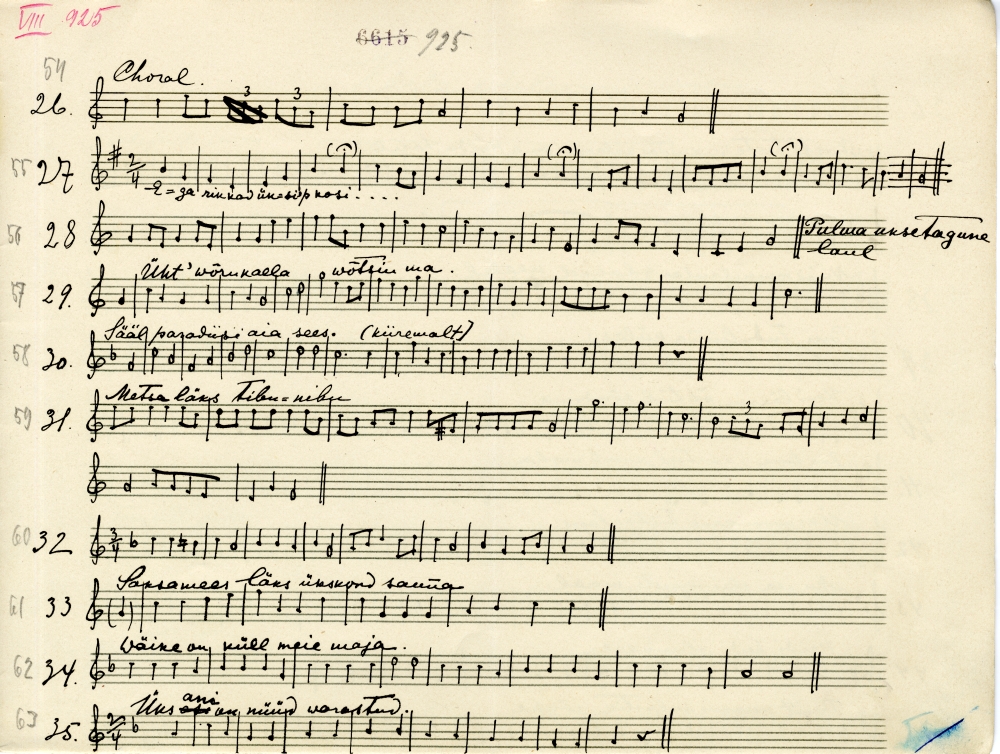 VIII 925
6615 925.
54
Choral.
26.
3 3
55 27
2/4
E=ga rikkad üksip kosi....
56 28
Pulma uksetagune
laul
57 29.
Üht' wõrukaela wõtsin ma.
58 30.
Sääl paradiisi aia sees. (kiiremalt)
59 31.
Metsa läks Tibu=nibu
3
60 32
3/4
61 33
Saksamees läks ükskord sauna
62 34.
Wäike on küll meie maja.
63 35.
Üks ani on nüüd varastud.
2/4